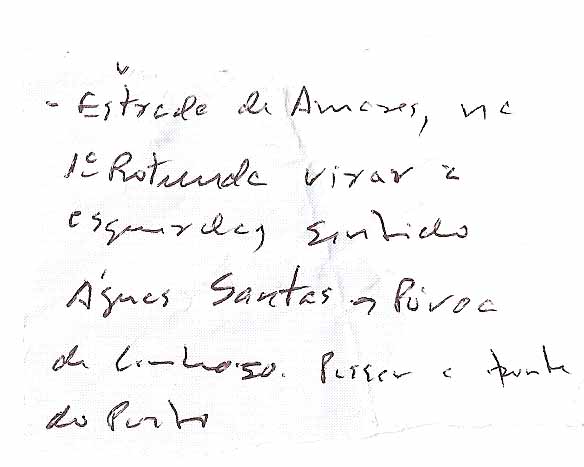 - Estrada de Amares, na
1ª Rotunda virar a
esquerda, sentido
Águas Santas → Póvoa
de Lanhoso. Passar a ponte
do Porto